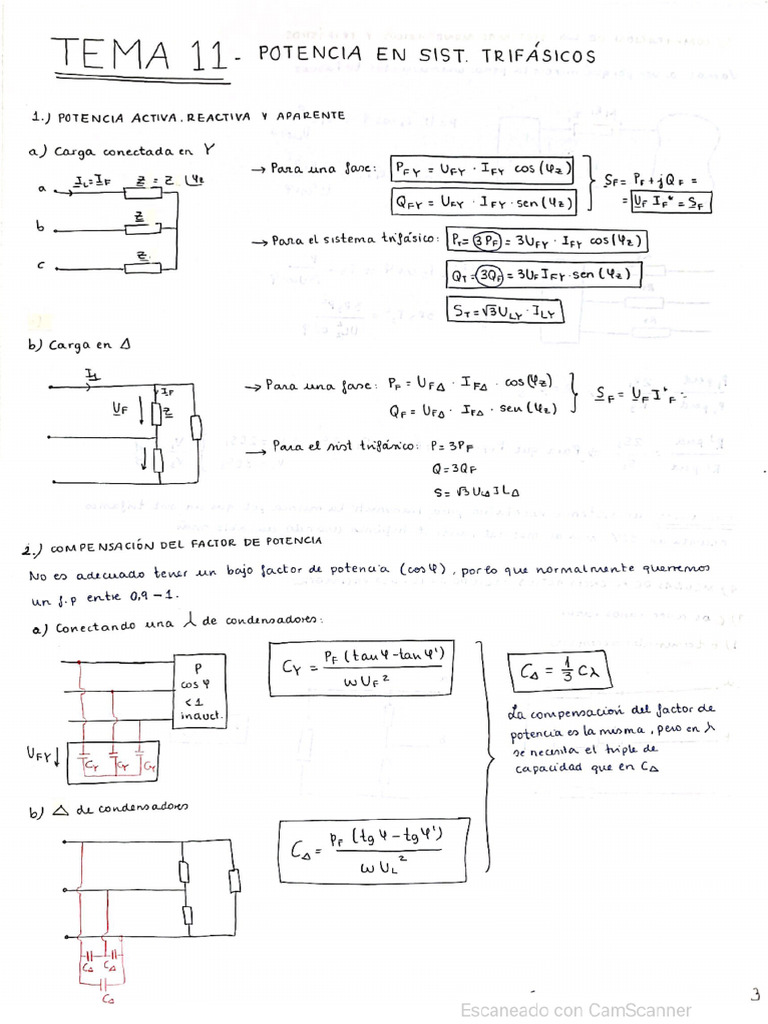 TEMA 11.- POTENCIA EN SIST. TRIFÁSICOS
1.) POTENCIA ACTIVA, REACTIVA Y APARENTE
a) Carga conectada en Y
a I_L=I_F Z = Z ∠φz
b Z
c Z
→ Para una fase: P_FY = U_FY · I_FY cos(φz)
Q_FY = U_FY · I_FY · sen(φz)
S_F = P_F + jQ_F =
= U_F I_F* = S_F
→ Para el sistema trifásico: P_T = 3P_F = 3U_FY · I_FY cos(φz)
Q_T = 3Q_F = 3U_F I_FY · sen(φz)
S_T = √3 U_LY · I_LY
b) Carga en Δ
I_L
I_F
U_F Z
→ Para una fase: P_F = U_FΔ · I_FΔ · cos(φz)
Q_F = U_FΔ · I_FΔ · sen(φz)
S_F = U_F I*_F
→ Para el sist trifásico: P = 3P_F
Q = 3Q_F
S = √3 U_LΔ I_LΔ
2.) COMPENSACIÓN DEL FACTOR DE POTENCIA
No es adecuado tener un bajo factor de potencia (cos φ), por lo que normalmente querremos
un f.p entre 0,9 – 1.
a) Conectando una ⅄ de condensadores:
P
cos φ
< 1
induct.
U_FY
C_Y C_Y C_Y
C_Y = P_F (tan φ – tan φ') / ω U_F²
C_Δ = 1/3 C_⅄
La compensación del factor de
potencia es la misma, pero en ⅄
se necesita el triple de
capacidad que en C_Δ
b) Δ de condensadores
C_Δ = P_F (tg φ – tg φ') / ω U_L²
C_Δ C_Δ
C_Δ
3
Escaneado con CamScanner